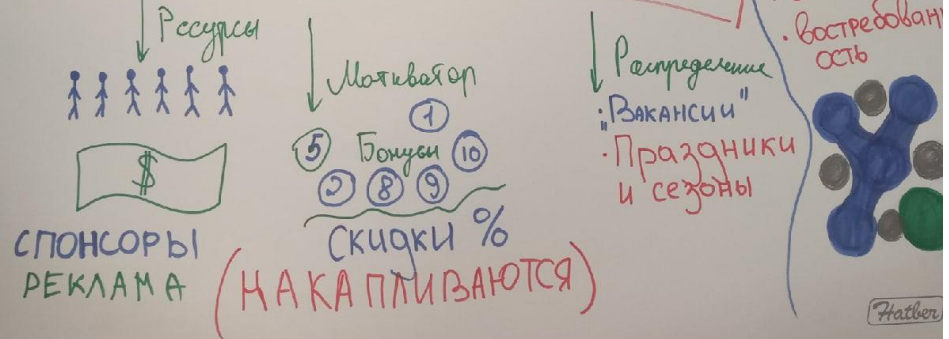 Ресурсы
$
СПОНСОРЫ
РЕКЛАМА
Мотиватор
1
5 Бонусы 10
2 8 9
Скидки %
(НАКАПЛИВАЮТСЯ)
Распределение
· "Вакансии"
· Праздники
и сезоны
· востребован
ость
Hatber